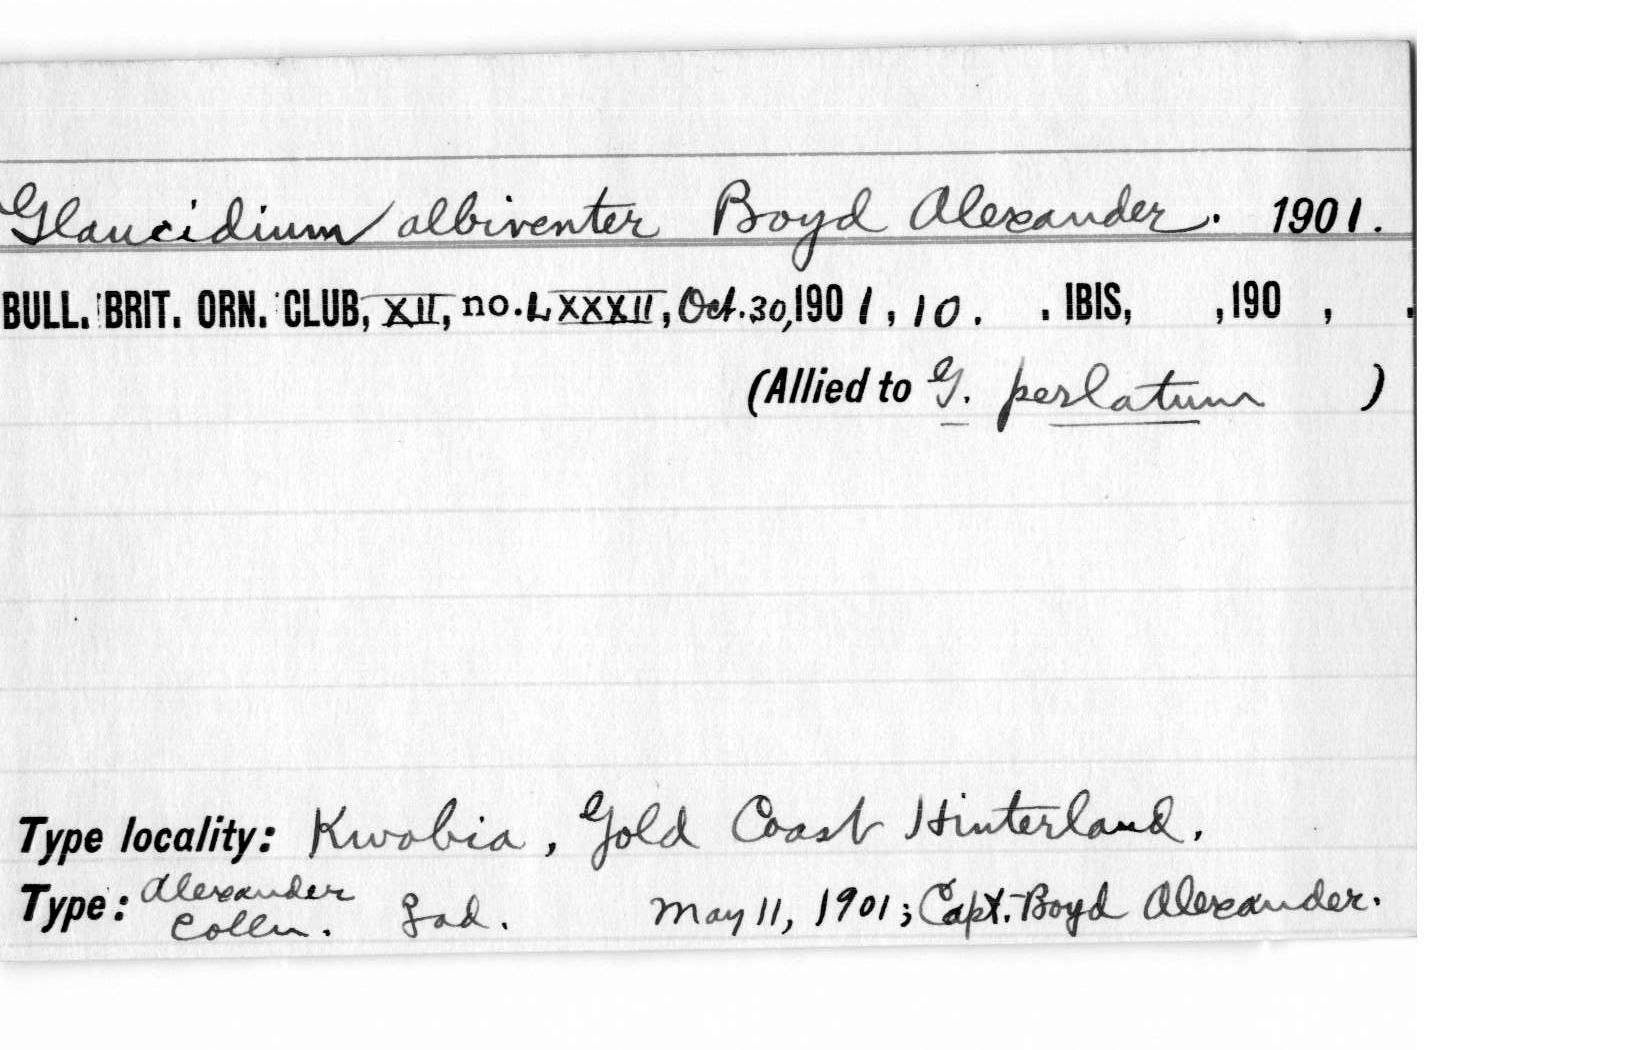 Glaucidium albiventer Boyd Alexander. 1901.
BULL. BRIT. ORN. CLUB, XII, no. LXXXII, Oct. 30, 1901, 10. . IBIS, , 190 , .
(Allied to G. perlatum )
Type locality: Kwobia, Gold Coast Hinterland.
Type: Alexander Colln. ad. May 11, 1901; Capt. Boyd Alexander.